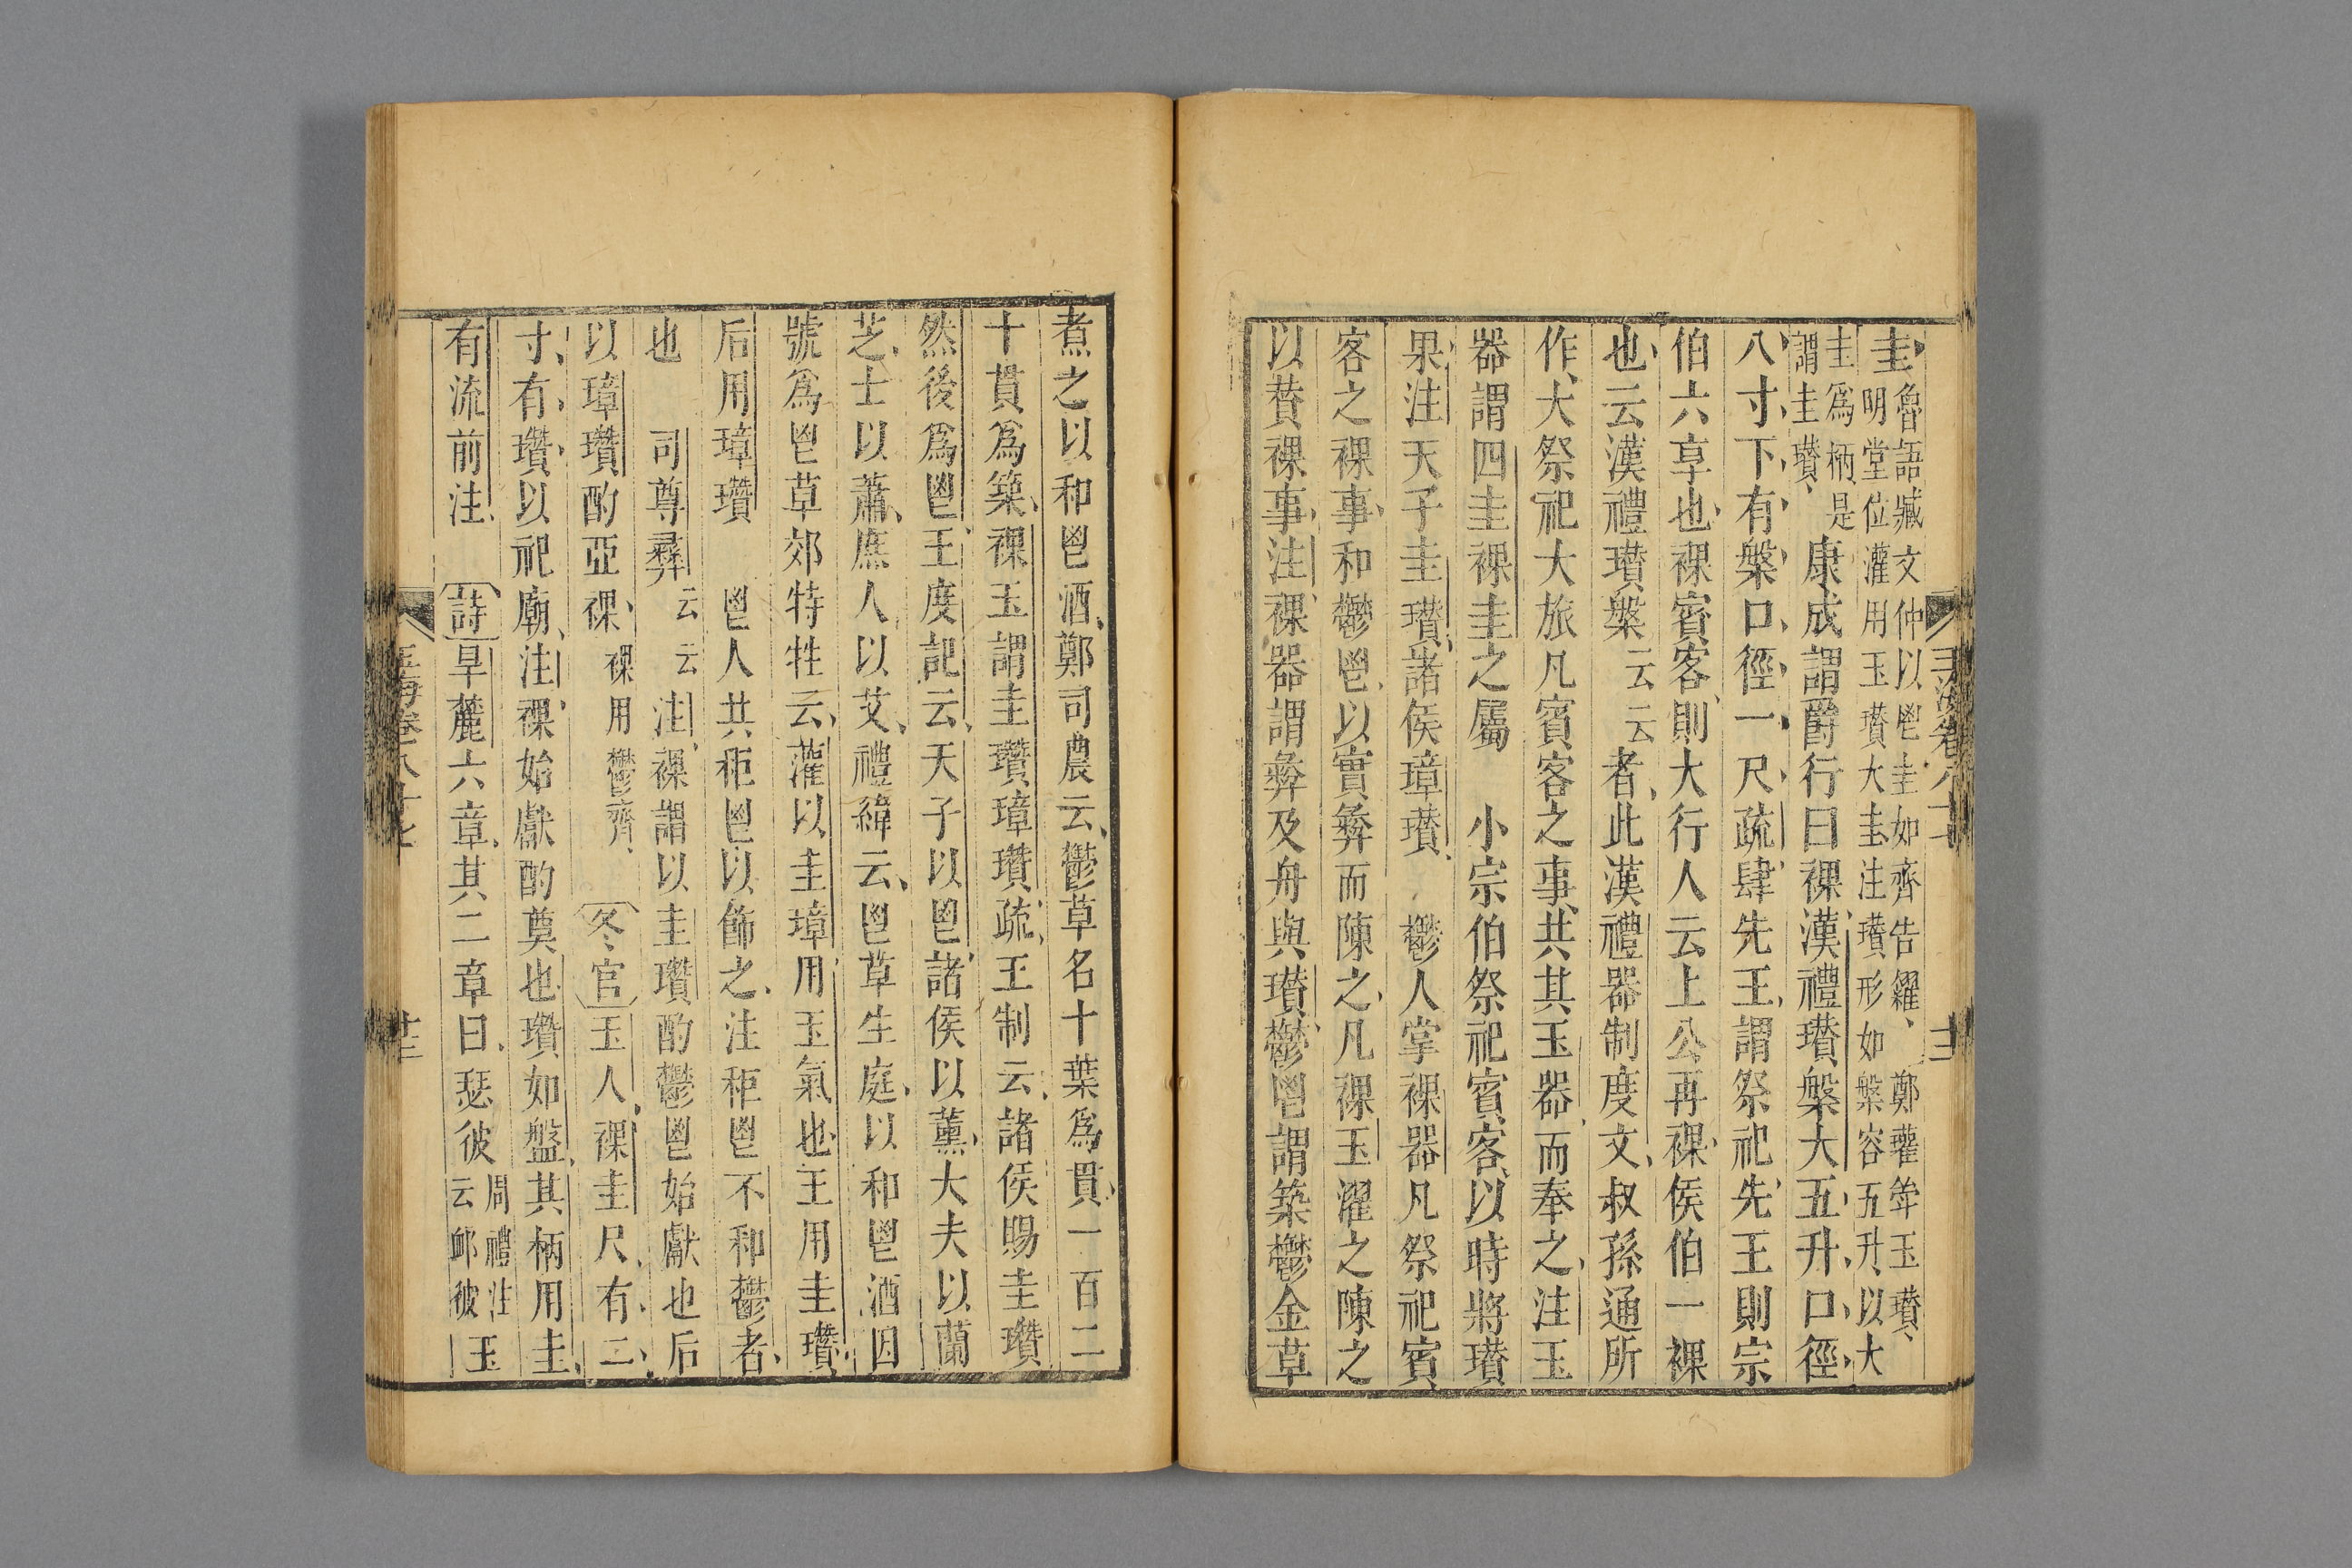 圭魯語臧文仲以鬯圭如齊告糴、鄭瓘斝玉瓚、
明堂位灌用玉瓚大圭注瓚形如槃容五升以大
圭爲柄是
謂圭瓚、康成謂爵行曰祼漢禮瓚槃大五升口徑
八寸下有槃口徑一尺疏肆先王謂祭祀先王則宗
伯六享也祼賓客則大行人云上公再祼侯伯一祼
也云漢禮瓚槃云云者此漢禮器制度文叔孫通所
作大祭祀大旅凡賓客之事共其玉器而奉之注玉
器謂四圭祼圭之屬　小宗伯祭祀賓客以時將瓚
果注天子圭瓚諸侯璋瓚　鬱人掌祼器凡祭祀賓
客之祼事和鬱鬯以實彝而陳之凡祼玉濯之陳之
以贊祼事注祼器謂彝及舟與瓚鬱鬯謂築鬱金草
煮之以和鬯酒鄭司農云鬱草名十葉爲貫一百二
十貫爲築祼玉謂圭瓚璋瓚疏王制云諸侯賜圭瓚
然後爲鬯王度記云天子以鬯諸侯以薰大夫以蘭
芝士以蕭庶人以艾禮緯云鬯草生庭以和鬯酒因
號爲鬯草郊特牲云灌以圭璋用玉氣也王用圭瓚
后用璋瓚　鬯人共秬鬯以飾之注秬鬯不和鬱者
也　司尊彝云云注祼謂以圭瓚酌鬱鬯始獻也后
以璋瓚酌亞祼祼用鬱齊、　冬官玉人祼圭尺有二
寸有瓚以祀廟注祼始獻酌奠也瓚如盤其柄用圭
有流前注　詩旱麓六章其二章曰瑟彼周禮注
云卹彼玉